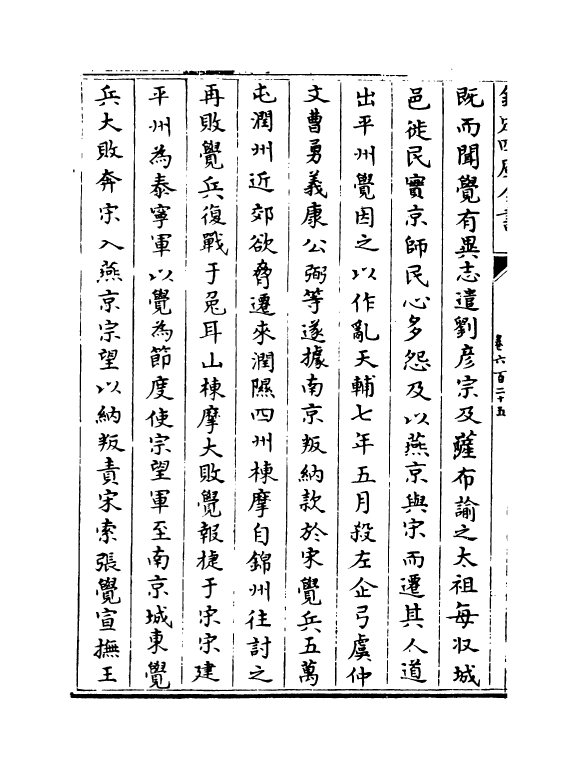 欽定四庫全書
卷六百二十五
既而聞覺有異志遣劉彦宗及薩布諭之太祖每收城
邑徙民實京師民心多怨及以燕京與宋而遷其人道
出平州覺因之以作亂天輔七年五月殺左企弓虞仲
文曹勇義康公弼等遂據南京叛納款於宋覺兵五萬
屯潤州近郊欲脅遷來潤隰四州棟摩自錦州往討之
再敗覺兵復戰于兔耳山棟摩大敗覺報捷于宋宋建
平州為泰寧軍以覺為節度使宗望軍至南京城東覺
兵大敗奔宋入燕京宗望以納叛責宋索張覺宣撫王